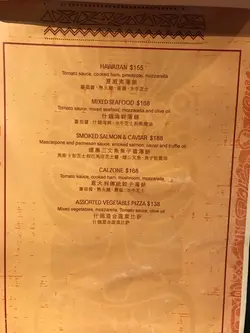 HAWAIIAN $165
Tomato sauce, cooked ham, pineapple, mozzarella
夏威夷薄餅
MIXED SEAFOOD $188
Tomato sauce, mixed seafood, mozzarella and olive oil
什錦海鮮薄餅
SMOKED SALMON & CAVIAR $188
Mascarpone and parmesan sauce, smoked salmon, caviar and truffle oil
煙燻三文魚魚子醬薄餅
CALZONE $168
Tomato sauce, cooked ham, mushroom, mozzarella
意大利傳統餃子薄餅
ASSORTED VEGETABLE PIZZA $138
Mixed vegetables, mozzarella, Tomato sauce, olive oil
什錦混合蔬菜比萨